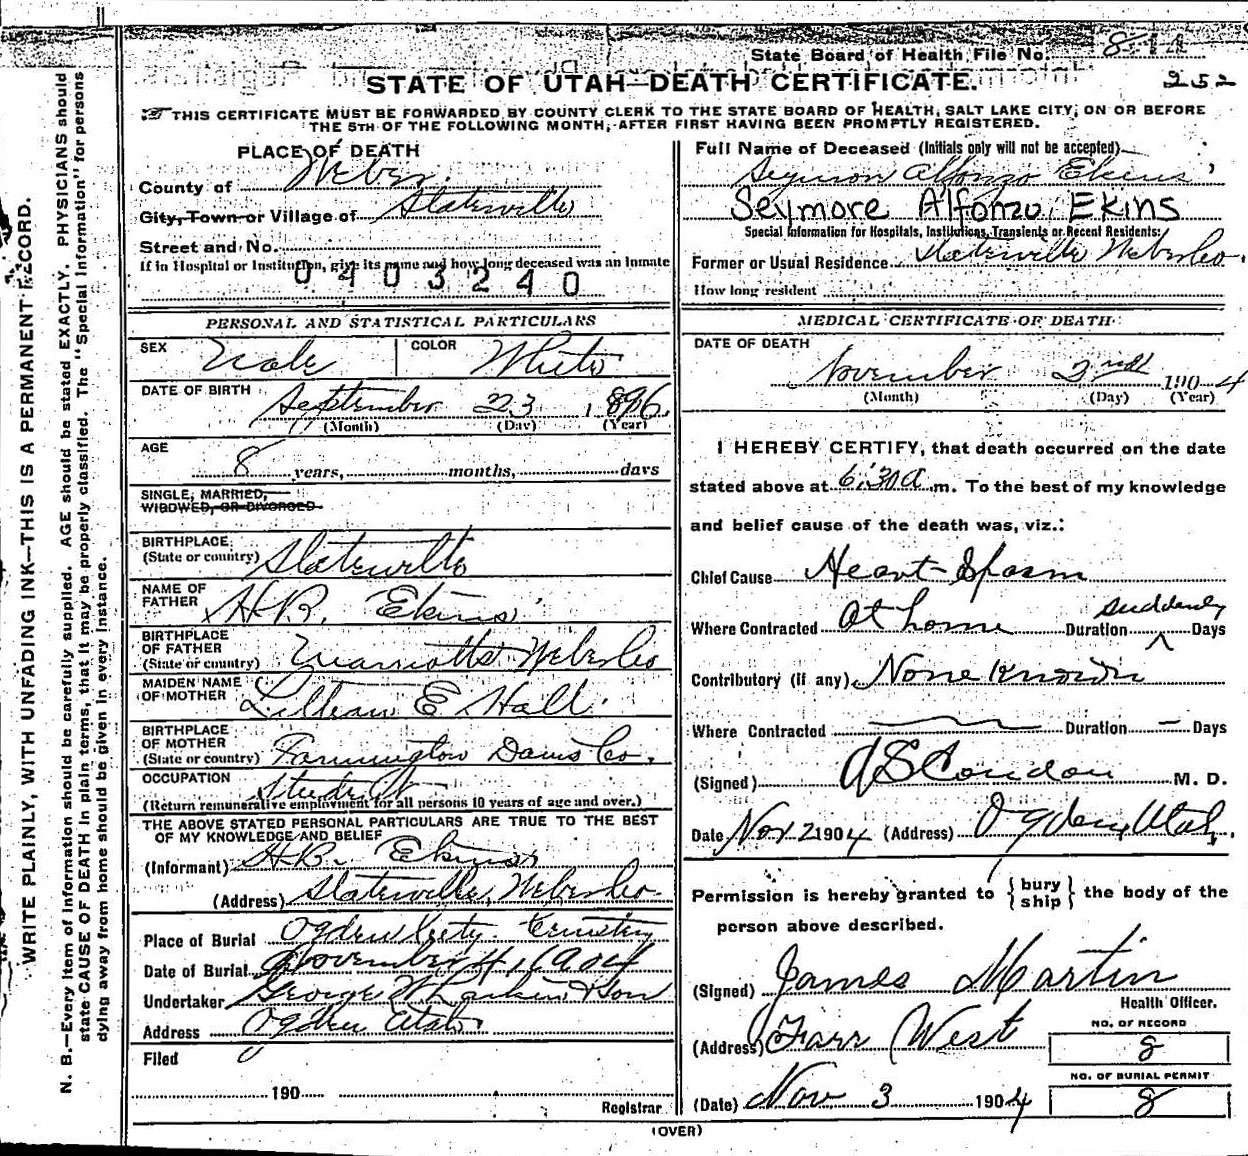 State Board of Health File No. 844
252
STATE OF UTAH—DEATH CERTIFICATE.
THIS CERTIFICATE MUST BE FORWARDED BY COUNTY CLERK TO THE STATE BOARD OF HEALTH, SALT LAKE CITY, ON OR BEFORE
THE 5TH OF THE FOLLOWING MONTH, AFTER FIRST HAVING BEEN PROMPTLY REGISTERED.
WRITE PLAINLY, WITH UNFADING INK—THIS IS A PERMANENT RECORD.
N. B.—Every item of information should be carefully supplied. AGE should be stated EXACTLY. PHYSICIANS should
state CAUSE OF DEATH in plain terms, that it may be properly classified. The "Special Information" for persons
dying away from home should be given in every instance.
PLACE OF DEATH
County of Weber.
City, Town or Village of Slaterville
Street and No.
If in Hospital or Institution, give its name and how long deceased was an inmate
0403240
PERSONAL AND STATISTICAL PARTICULARS
SEX Male COLOR White
DATE OF BIRTH September 23 1896.
(Month) (Day) (Year)
AGE
8 years, months, days
SINGLE, MARRIED,
WIDOWED, OR DIVORCED
BIRTHPLACE
(State or country) Slaterville
NAME OF
FATHER H.R. Ekins
BIRTHPLACE
OF FATHER
(State or country) Marriotts Weber Co
MAIDEN NAME
OF MOTHER Lillian E Hall.
BIRTHPLACE
OF MOTHER
(State or country) Farmington Davis Co.
OCCUPATION Student
(Return remunerative employment for all persons 10 years of age and over.)
THE ABOVE STATED PERSONAL PARTICULARS ARE TRUE TO THE BEST
OF MY KNOWLEDGE AND BELIEF
(Informant) H.R. Ekins
(Address) Slaterville, Weber Co.
Place of Burial Ogden City Cemetery
Date of Burial November 4, 1904
Undertaker George W Larkin & Son
Address Ogden Utah
Filed
190
Registrar
Full Name of Deceased (Initials only will not be accepted)
Seymon Alfonzo Ekins
Seymore Alfonzo Ekins
Special Information for Hospitals, Institutions, Transients or Recent Residents:
Former or Usual Residence Slaterville Weber Co.
How long resident
MEDICAL CERTIFICATE OF DEATH
DATE OF DEATH
November 2nd 1904
(Month) (Day) (Year)
I HEREBY CERTIFY, that death occurred on the date
stated above at 6:30 a m. To the best of my knowledge
and belief cause of the death was, viz.:
Chief Cause Heart Spasm
Where Contracted At home Duration suddenly Days
Contributory (if any) None Known
Where Contracted — Duration — Days
(Signed) A S Condon M. D.
Date Nov 2 1904 (Address) Ogden, Utah.
Permission is hereby granted to {bury ship} the body of the
person above described.
(Signed) James Martin
Health Officer.
(Address) Farr West
NO. OF RECORD
8
NO. OF BURIAL PERMIT
8
(Date) Nov 3 1904
(OVER)